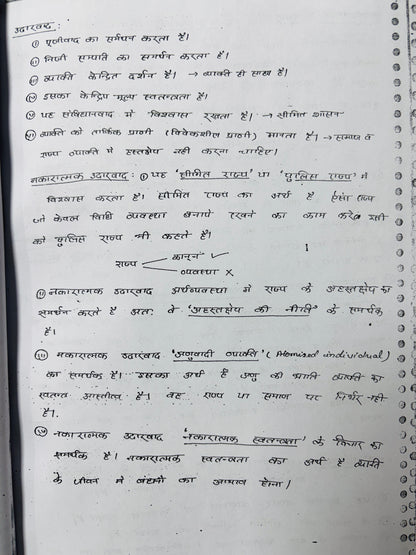 उदारवाद :
(i) पूंजीवाद का समर्थन करता है।
(ii) निजी सम्पति का समर्थन करता है।
(iii) व्यक्ति केन्द्रित दर्शन है। → व्यक्ति ही साध्य है।
(iv) इसका केन्द्रिय मूल्य स्वतन्त्रता है।
(v) यह संविधानवाद में विश्वास रखता है। → सीमित शासन
(vi) व्यक्ति को तार्किक प्राणी (विवेकशील प्राणी) मानता है। → समाज व
राज्य व्यक्ति में हस्तक्षेप नही करना चाहिए।
नकारात्मक उदारवाद : (i) यह 'सीमित राज्य' या 'पुलिस राज्य' में
विश्वास करता है। सीमित राज्य का अर्थ है ऐसा राज्य
जो केवल विधि व्यवस्था बनाये रखने का काम करे इसी
को पुलिस राज्य भी कहते है।
कानून ✓
राज्य
व्यवस्था ✗
(ii) नकारात्मक उदारवाद अर्थव्यवस्था में राज्य के अहस्तक्षेप का
समर्थन करते है अतः वे 'अहस्तक्षेप की नीति' के समर्थक
है।
(iii) नकारात्मक उदारवाद 'अणुवादी व्यक्ति' (Atomised individual)
का समर्थक है। इसका अर्थ है अणु की भांति व्यक्ति का
स्वतन्त्र अस्तीत्व है। वह राज्य या समाज पर निर्भर नही
है।
(iv) नकारात्मक उदारवाद 'नकारात्मक स्वतन्त्रता' के विचार का
समर्थक है। नकारात्मक स्वतन्त्रता का अर्थ है व्यक्ति
के जीवन में बंधनों का अभाव होना।